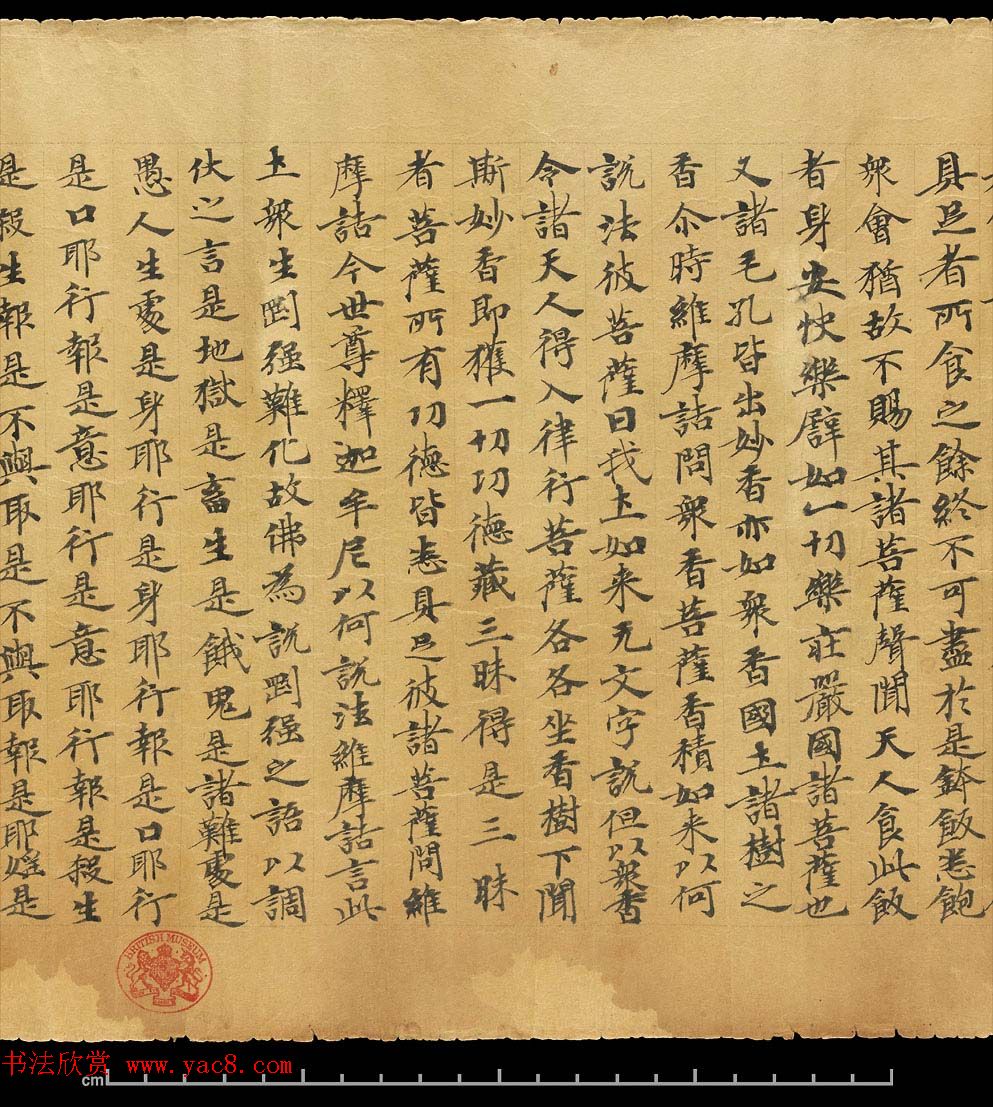 具足者所食之餘終不可盡於是鉢飯悉飽
眾會猶故不賜其諸菩薩聲聞天人食此飯
者身安快樂辟如一切樂莊嚴國諸菩薩也
又諸毛孔皆出妙香亦如眾香國土諸樹之
香尒時維摩詰問眾香菩薩香積如来以何
說法彼菩薩曰我土如来无文字說但以眾香
令諸天人得入律行菩薩各各坐香樹下聞
斯妙香即獲一切功德藏三昧得是三昧
者菩薩所有功德皆悉具足彼諸菩薩問維
摩詰今世尊釋迦牟尼以何說法維摩詰言此
土眾生剛强難化故佛為說剛强之語以調
伏之言是地獄是畜生是餓鬼是諸難處是
愚人生處是身耶行是身耶行報是口耶行
是口耶行報是意耶行是意耶行報是殺生
是殺生報是不與取是不與取報是耶婬是
BRITISH MUSEUM
书法欣赏 www.yac8.com
cm